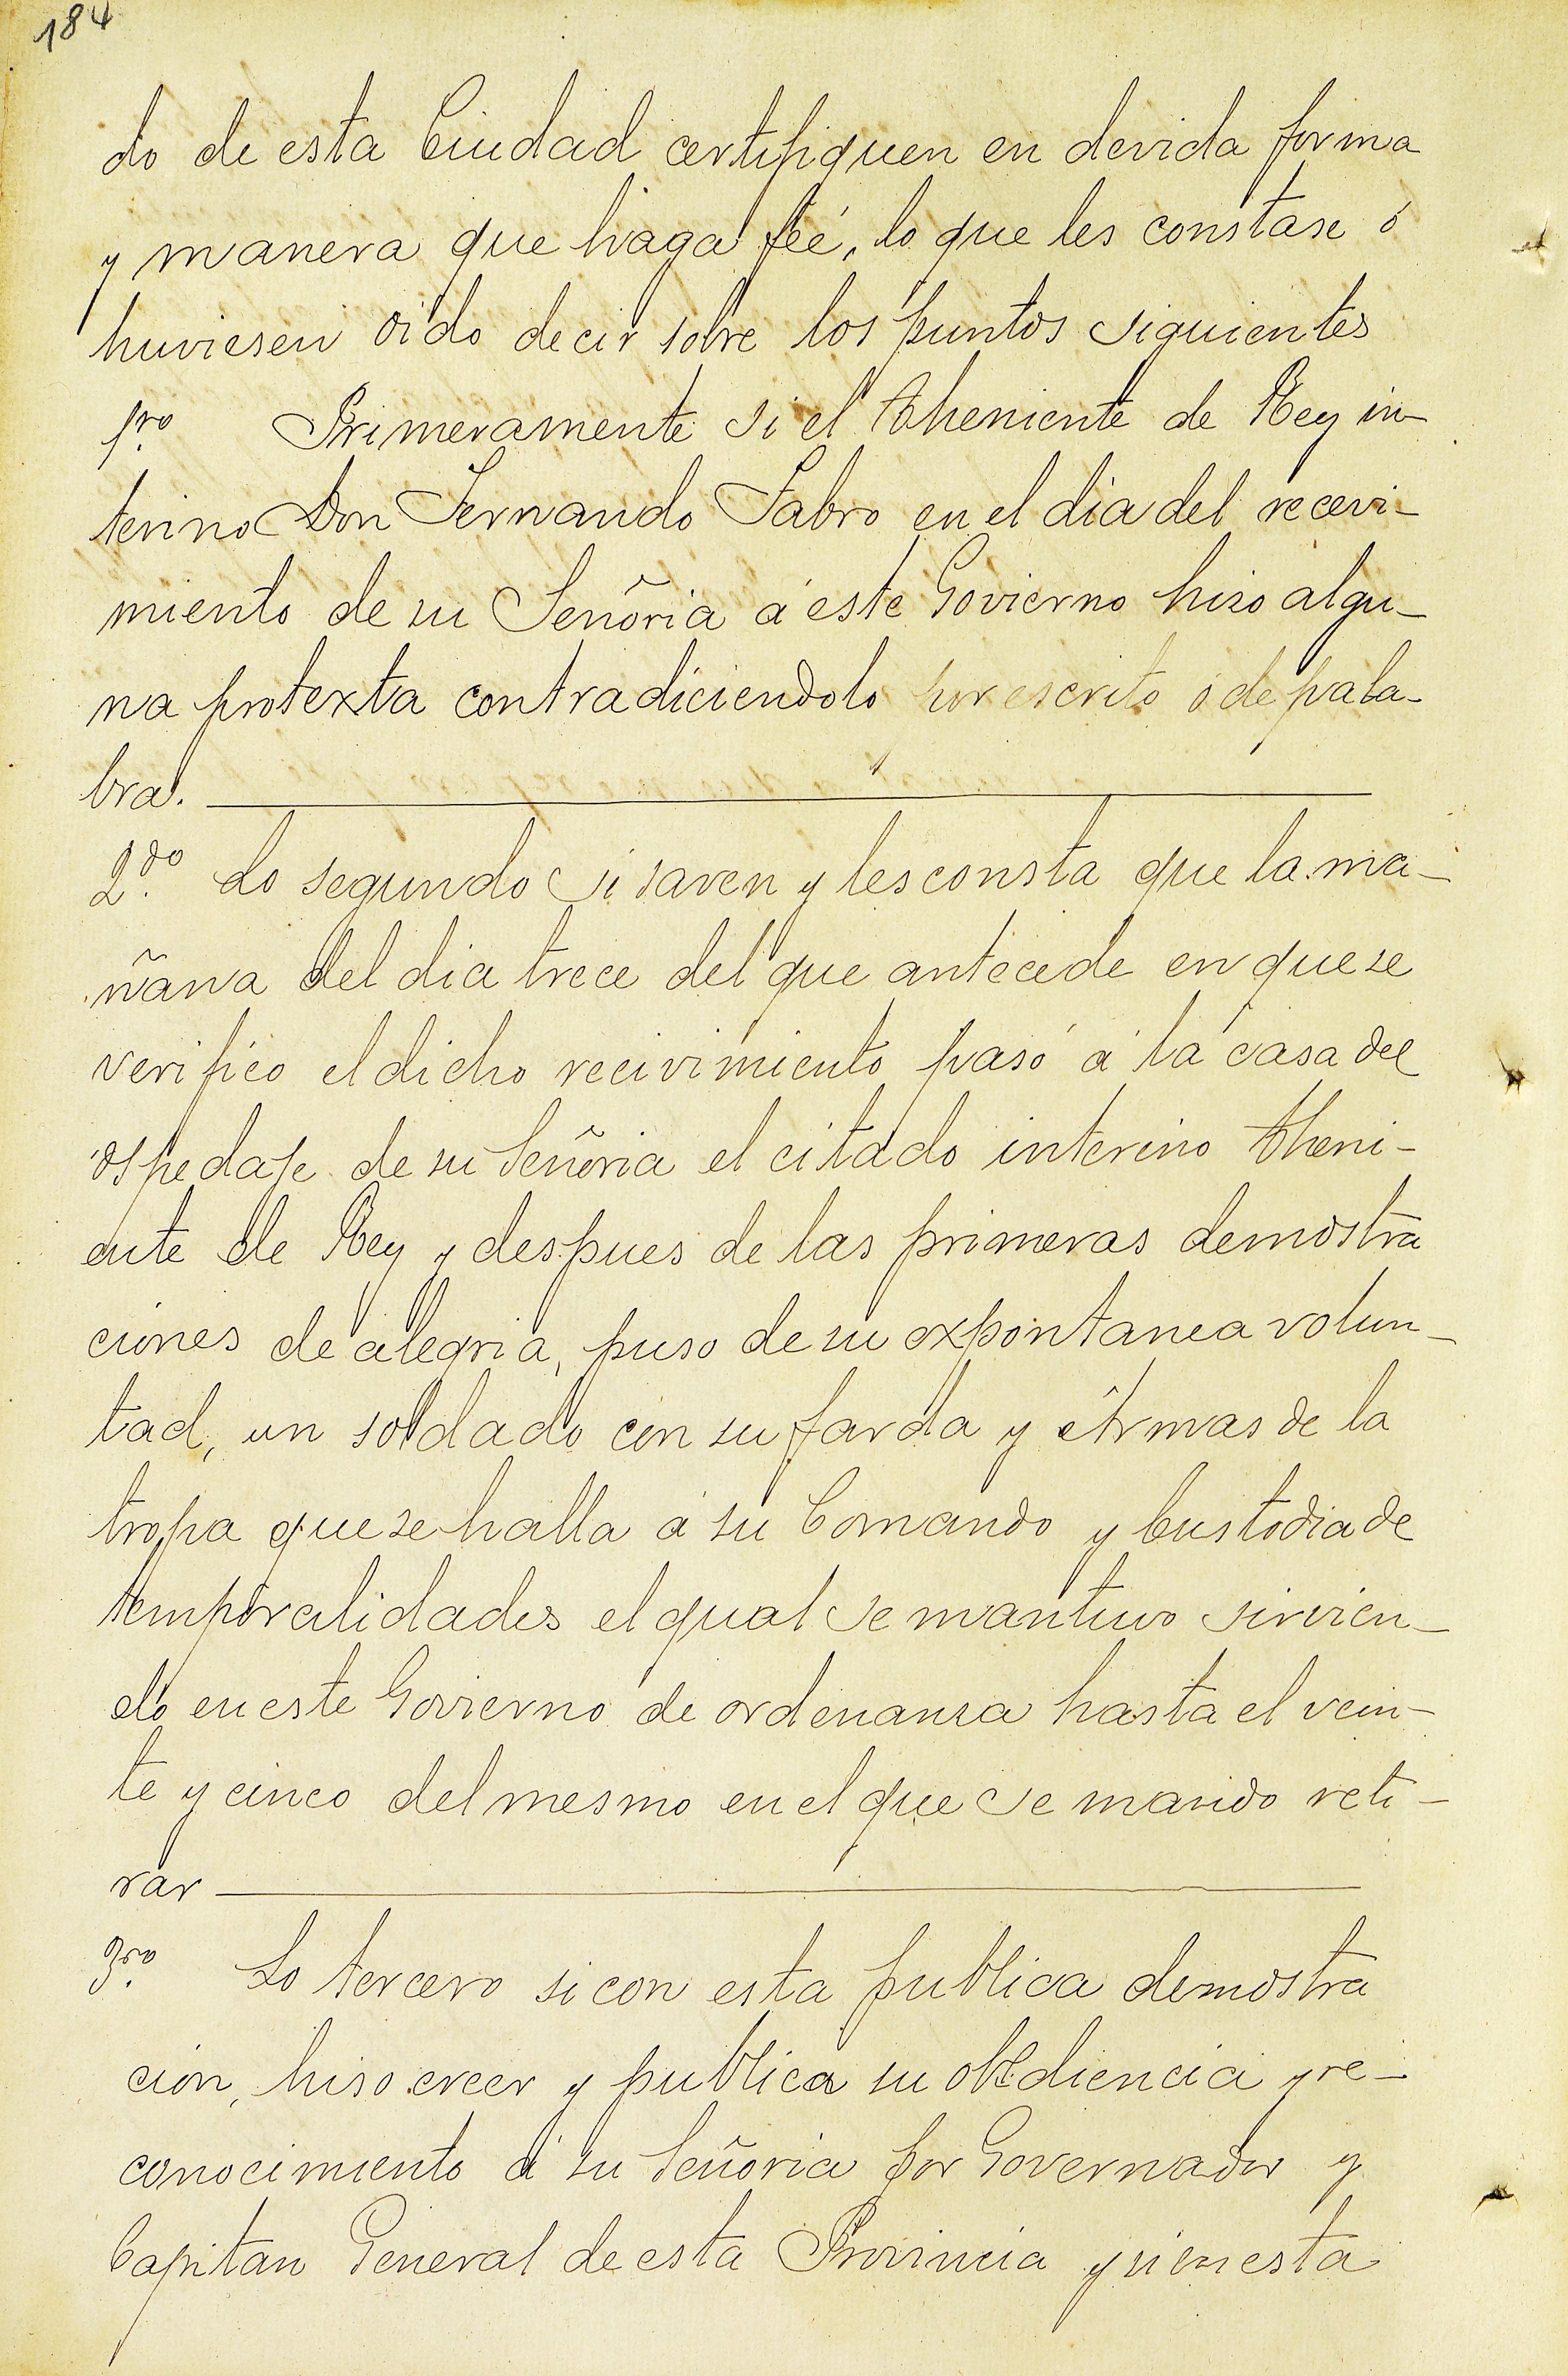 184
do de esta Ciudad certifiquen en devida forma
y manera que haga feé, lo que les constase ó
huviesen oido decir sobre los puntos siguientes
1.ro Primeramente si el Theniente de Rey in-
terino Don Fernando Fabro en el dia del recevi-
miento de su Señoria á este Govierno hiso algu-
na protexta contradiciendolo por escrito ó de pala-
bra.
2.do Lo segundo si saven y les consta que la ma-
ñana del dia trece del que antecede en que se
verifico el dicho recivimiento pasó á la casa del
ospedaje de su Señoria el citado interino Theni-
ente de Rey y despues de las primeras demostra
ciones de alegria, puso de su expontanea volun-
tad, un soldado con su farda y Armas de la
tropa que se halla á su Comando y Custodia de
temporalidades el qual se mantuvo sirvien-
do en este Govierno de ordenansa hasta el vein-
te y cinco del mesmo en el que se mando reti-
rar
3.ro Lo tercero si con esta publica demostra
ción, hiso creer y publica su obediencia y re-
conocimiento á su Señoria por Governador y
Capitan General de esta Provincia y si en esta